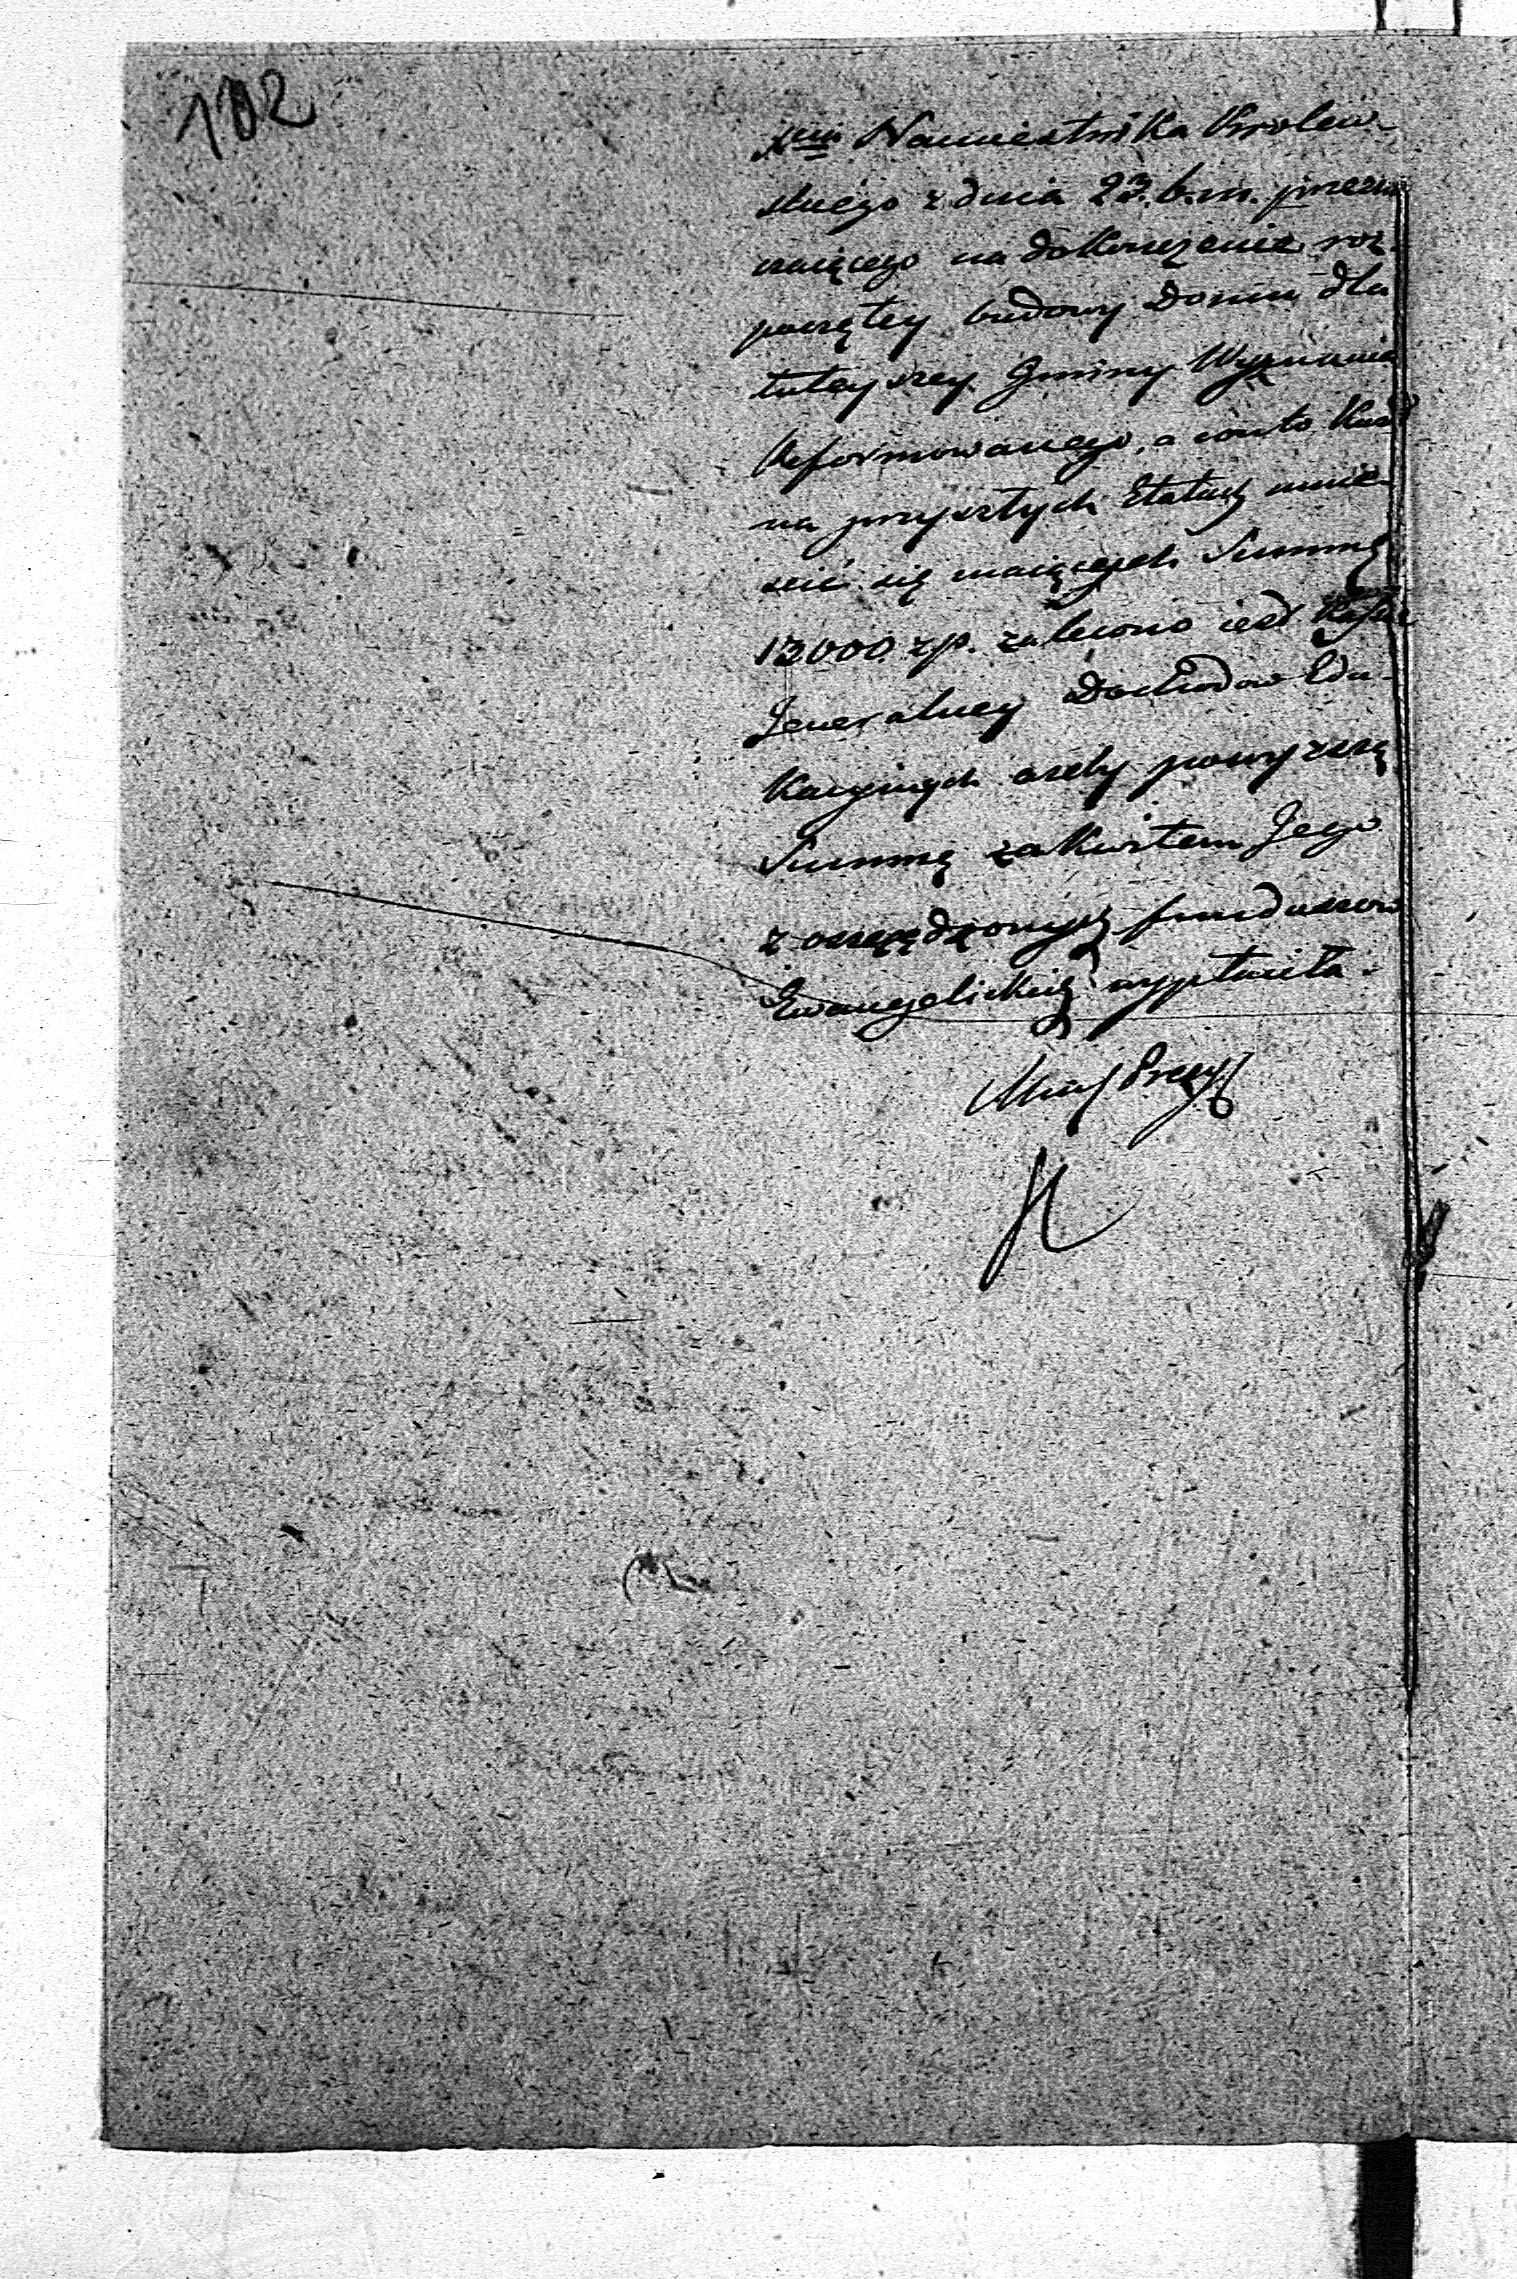 102
Xcia Namiestnika Krolew-
skiego z dnia 23. b. m. przezna
czaiącego na dokończenie roz-
poczętey budowy Domu dla
tuteyszey Gminy Wyznania
Reformowanego, a conto
na przyszłych Etatach umie-
ścić się maiących Summę
12000 zp. zalecono iest Kassie
Jeneralney Dochodow Edu-
kacyinych ażeby powyższą
Summę za Kwitem Jego
z oszczędzonych funduszow
Ewangelickich wypłaciła.